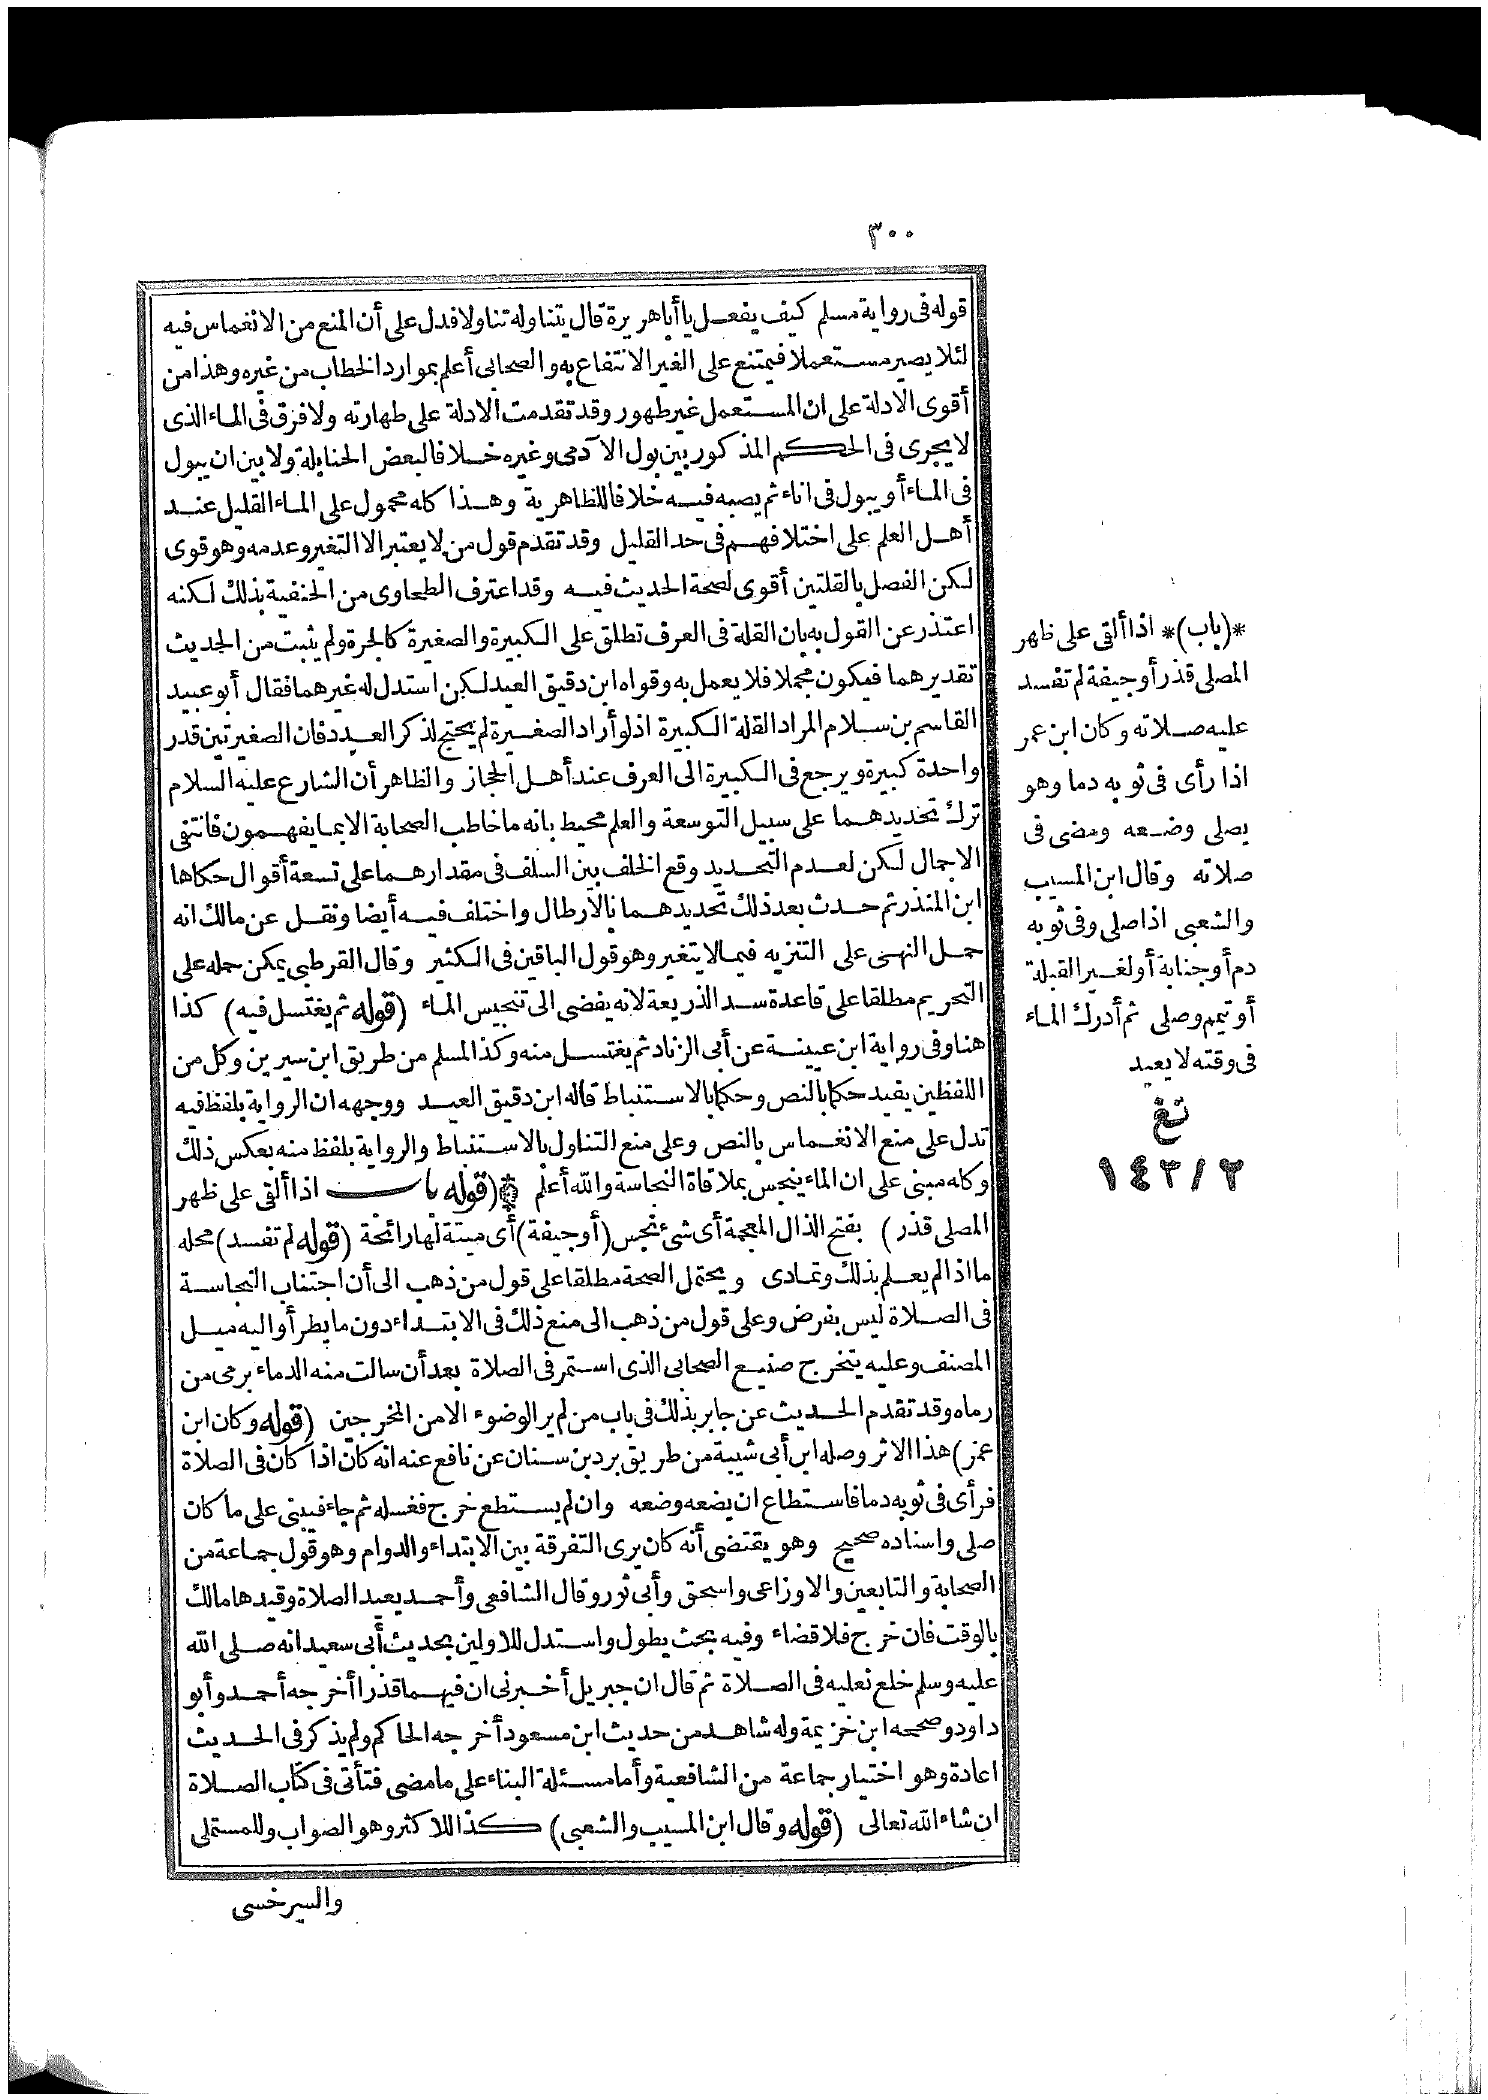 ٣٠٠
قوله فى رواية مسلم كيف يفعل يا أباهريرة قال يتناوله تناولا فدل على أن المنع من الانغماس فيه
لئلا يصير مستعملا فيمتنع على الغير الانتفاع به والصحابى أعلم بموارد الخطاب من غيره وهذا من
أقوى الادلة على ان المستعمل غير طهور وقد تقدمت الادلة على طهارته ولا فرق فى الماء الذى
لا يجرى فى الحكم المذكور بين بول الآدمى وغيره خلافا لبعض الحنابلة ولا بين ان يبول
فى الماء أو يبول فى اناء ثم يصبه فيه خلافا للظاهرية وهذا كله محمول على الماء القليل عند
أهل العلم على اختلافهم فى حد القليل وقد تقدم قول من لا يعتبر الا التغير وعدمه وهو قوى
لكن الفصل بالقلتين أقوى لصحة الحديث فيه وقد اعترف الطحاوى من الحنفية بذلك لكنه
اعتذر عن القول به بان القلة فى العرف تطلق على الكبيرة والصغيرة كالجرة ولم يثبت من الحديث
تقديرهما فيكون مجملا فلا يعمل به وقواه ابن دقيق العيد لكن استدل له غيرهما فقال أبو عبيد
القاسم بن سلام المراد القلة الكبيرة اذ لو أراد الصغيرة لم يحتج لذكر العدد فان الصغيرتين قدر
واحدة كبيرة ويرجع فى الكبيرة الى العرف عند أهل الحجاز والظاهر أن الشارع عليه السلام
ترك تحديدهما على سبيل التوسعة والعلم محيط بانه ما خاطب الصحابة الا بما يفهمون فانتفى
الاجمال لكن لعدم التحديد وقع الخلف بين السلف فى مقدارهما على تسعة أقوال حكاها
ابن المنذر ثم حدث بعد ذلك تحديدهما بالارطال واختلف فيه أيضا ونقل عن مالك انه
حمل النهى على التنزيه فيما لا يتغير وهو قول الباقين فى الكثير وقال القرطبى يمكن حمله على
التحريم مطلقا على قاعدة سد الذريعة لانه يفضى الى تنجيس الماء (قوله ثم يغتسل فيه) كذا
هنا وفى رواية ابن عيينة عن أبى الزناد ثم يغتسل منه وكذا لمسلم من طريق ابن سيرين وكل من
اللفظين يفيد حكما بالنص وحكما بالاستنباط قاله ابن دقيق العيد ووجهه ان الرواية بلفظ فيه
تدل على منع الانغماس بالنص وعلى منع التناول بالاستنباط والرواية بلفظ منه بعكس ذلك
وكله مبنى على ان الماء ينجس بملاقاة النجاسة والله أعلم (قوله باب اذا ألقى على ظهر
المصلى قذر) بفتح الذال المعجمة أى شئ نجس (أوجيفة) أى ميتة لها رائحة (قوله لم تفسد) محله
ما اذا لم يعلم بذلك وتمادى ويحتمل الصحة مطلقا على قول من ذهب الى أن اجتناب النجاسة
فى الصلاة ليس بفرض وعلى قول من ذهب الى منع ذلك فى الابتداء دون ما يطرأ واليه ميل
المصنف وعليه يتخرج صنيع الصحابى الذى استمر فى الصلاة بعد أن سالت منه الدماء برمى من
رماه وقد تقدم الحديث عن جابر بذلك فى باب من لم ير الوضوء الا من المخرجين (قوله وكان ابن
عمر) هذا الاثر وصله ابن أبى شيبة من طريق برد بن سنان عن نافع عنه انه كان اذا كان فى الصلاة
فرأى فى ثوبه دما فاستطاع ان يضعه وضعه وان لم يستطع خرج فغسله ثم جاء فيبنى على ما كان
صلى واسناده صحيح وهو يقتضى أنه كان يرى التفرقة بين الابتداء والدوام وهو قول جماعة من
الصحابة والتابعين والاوزاعى واسحق وأبى ثور وقال الشافعى وأحمد يعيد الصلاة وقيدها مالك
بالوقت فان خرج فلا قضاء وفيه بحث يطول واستدل للاولين بحديث أبى سعيد انه صلى الله
عليه وسلم خلع نعليه فى الصلاة ثم قال ان جبريل أخبرنى ان فيهما قذرا أخرجه أحمد وأبو
داود وصححه ابن خزيمة وله شاهد من حديث ابن مسعود أخرجه الحاكم ولم يذكر فى الحديث
اعادة وهو اختيار جماعة من الشافعية وأما مسئلة البناء على ما مضى فتأتى فى كتاب الصلاة
ان شاء الله تعالى (قوله وقال ابن المسيب والشعبى) كذا للاكثر وهو الصواب وللمستملى
والسرخسى
*(باب)* اذا ألقى على ظهر
المصلى قذر أوجيفة لم تفسد
عليه صلاته وكان ابن عمر
اذا رأى فى ثوبه دما وهو
يصلى وضعه ومضى فى
صلاته وقال ابن المسيب
والشعبى اذا صلى وفى ثوبه
دم أو جنابة أو لغير القبلة
أو تيمم وصلى ثم أدرك الماء
فى وقته لا يعيد
تغ
١٤٣/٢